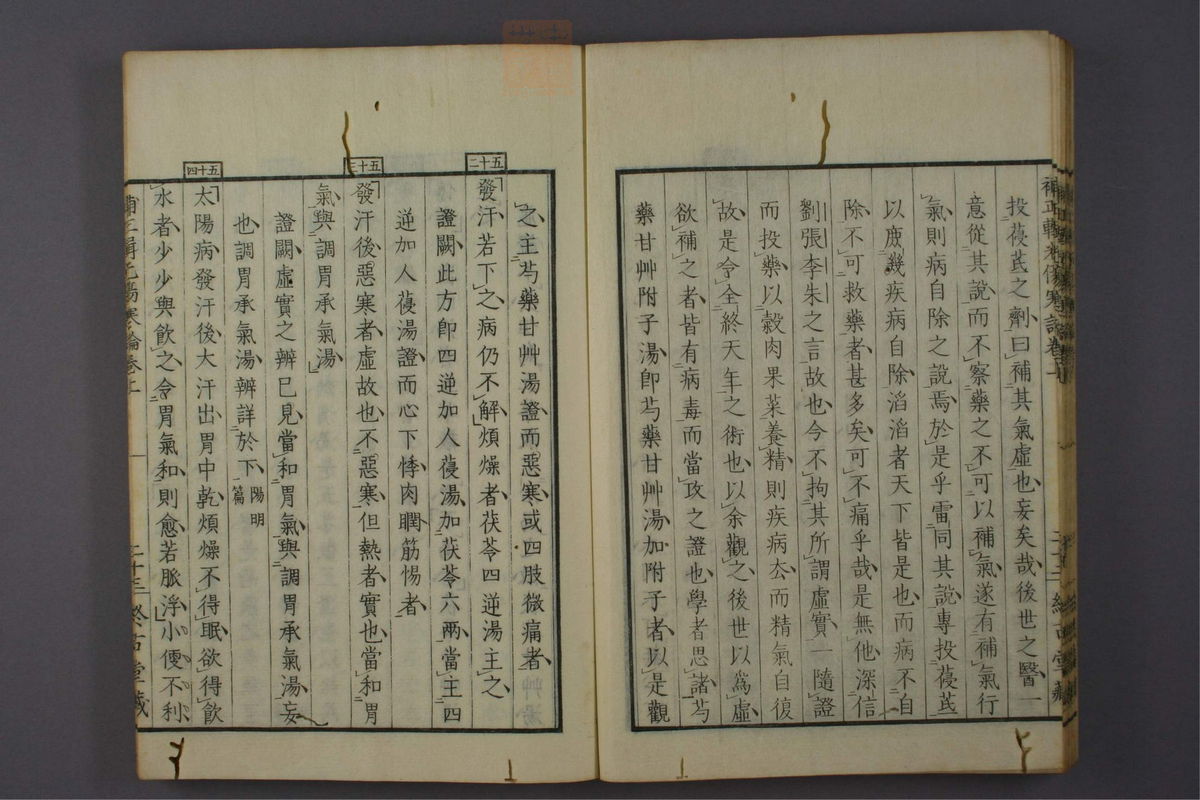 投葠芪之劑曰補其氣虛也妄矣哉後世之醫一
意從其說而不察藥之不可以補氣遂有補氣行
氣則病自除之說焉於是乎雷同其說專投葠芪
以庶幾疾病自除滔滔者天下皆是也而病不自
除不可救藥者甚多矣可不痛乎哉是無他深信
劉張李朱之言故也今不拘其所謂虛實一隨證
而投藥以穀肉果菜養精則疾病厺而精氣自復
故是令全終天年之術也以余觀之後世以爲虛
欲補之者皆有病毒而當攻之證也學者思諸芍
藥甘艸附子湯卽芍藥甘艸湯加附子者以是觀
之主芍藥甘艸湯證而惡寒或四肢微痛者
五十二
發汗若下之病仍不解煩燥者茯苓四逆湯主之
證闕此方卽四逆加人葠湯加茯苓六兩當主四
逆加人葠湯證而心下悸肉瞤筋惕者
五十三
發汗後惡寒者虛故也不惡寒但熱者實也當和胃
氣與調胃承氣湯
證闕虛實之辨已見當和胃氣與調胃承氣湯妄
也調胃承氣湯辨詳於下陽明篇
五十四
太陽病發汗後大汗出胃中乾煩燥不得眠欲得飲
水者少少與飲之令胃氣和則愈若脈浮小便不利
補正輯光傷寒論卷上
二十三